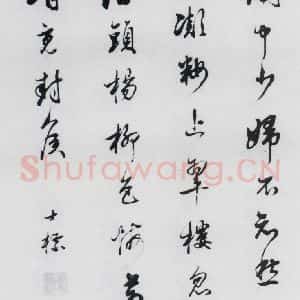 中少婦不知愁
凝粧上翠樓忽
頭楊柳色悔
覓封侯
士標
Shufawang.CN